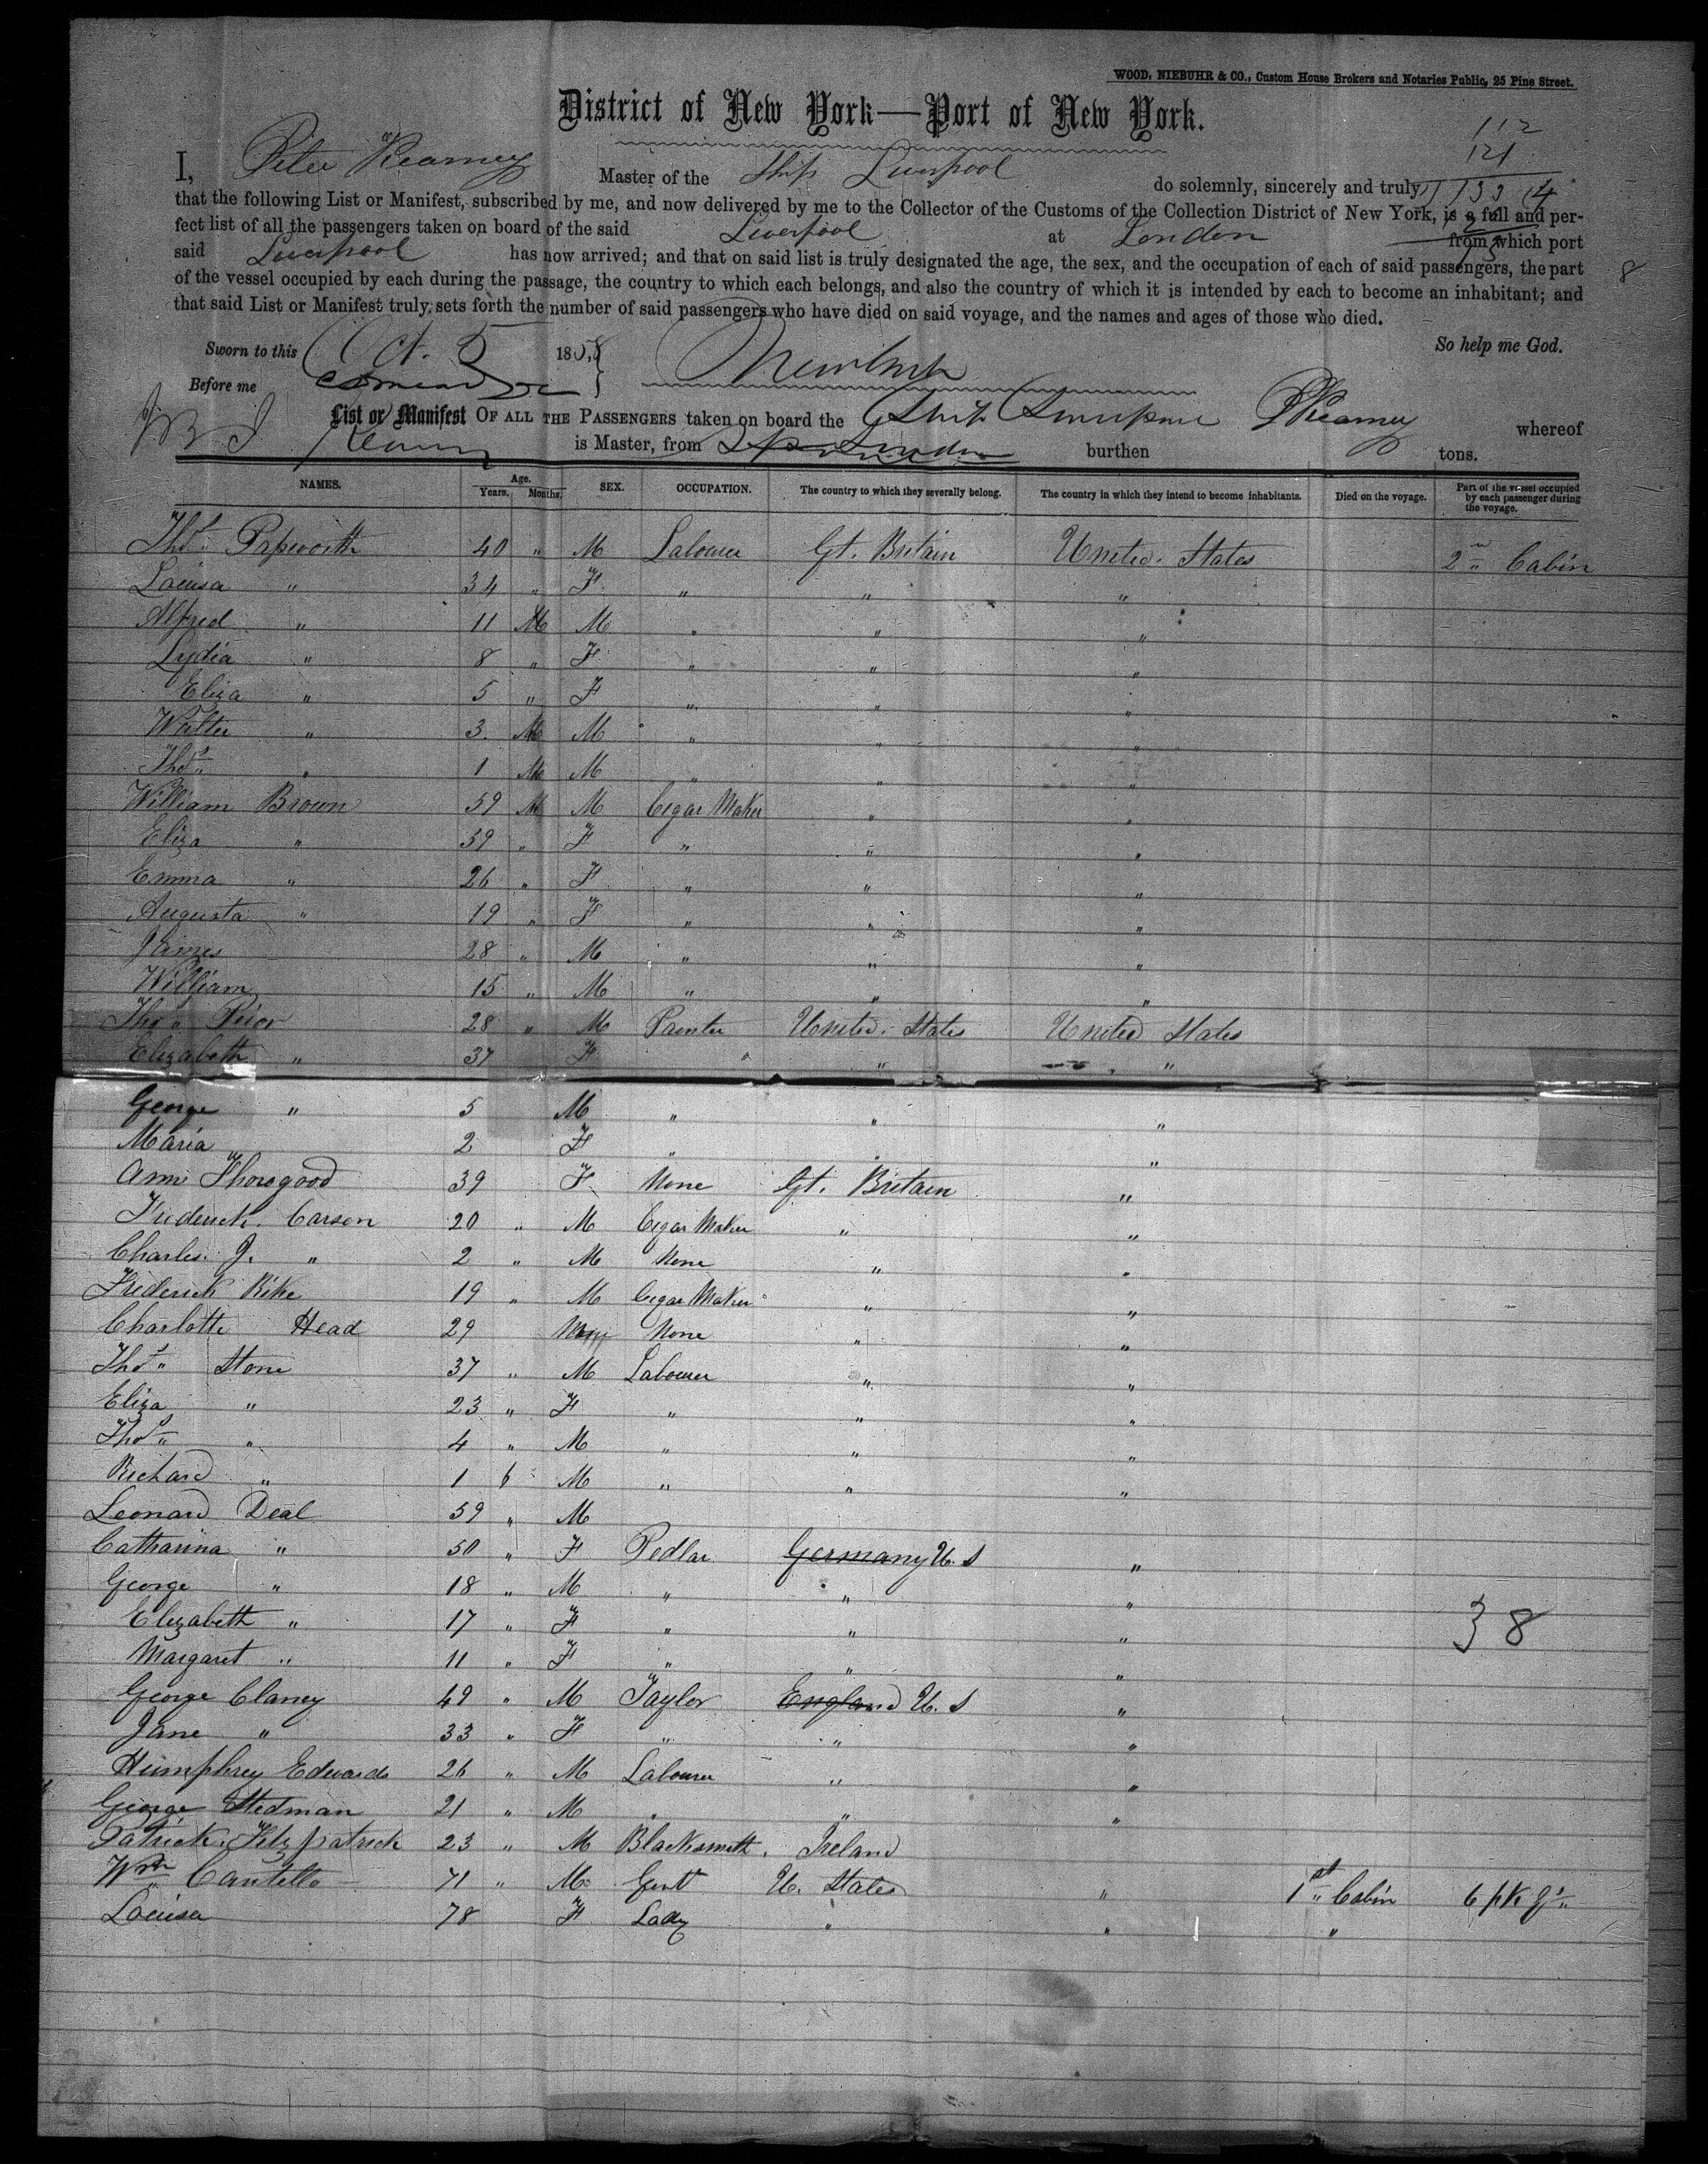 WOOD, NIEBUHR & CO., Custom House Brokers and Notaries Public, 25 Pine Street.
District of New York—Port of New York.
112
121
I, Peter Kearney Master of the Ship Liverpool do solemnly, sincerely and truly
that the following List or Manifest, subscribed by me, and now delivered by me to the Collector of the Customs of the Collection District of New York, is a full and per-
fect list of all the passengers taken on board of the said Liverpool at London from which port
said Liverpool has now arrived; and that on said list is truly designated the age, the sex, and the occupation of each of said passengers, the part
8
of the vessel occupied by each during the passage, the country to which each belongs, and also the country of which it is intended by each to become an inhabitant; and
that said List or Manifest truly sets forth the number of said passengers who have died on said voyage, and the names and ages of those who died.
Sworn to this Oct. 5 1858 So help me God.
Before me
List or Manifest OF ALL THE PASSENGERS taken on board the Ship Liverpool P Kearney whereof
is Master, from London burthen tons.
NAMES. Age. Years. Months. SEX. OCCUPATION. The country to which they severally belong. The country in which they intend to become inhabitants. Died on the voyage. Part of the vessel occupied by each passenger during the voyage.
Thos Papworth 40 " M Labourer Gt. Britain United States 2nd Cabin
Louisa " 34 " F " " "
Alfred " 11 M M " " "
Lydia " 8 " F " " "
Eliza " 5 " F " " "
Walter " 3. M M " " "
Thos " 1 M M " " "
William Brown 59 M M Cigar Maker " "
Eliza " 59 " F " " "
Emma " 26 " F " " "
Augusta " 19 " F " " "
James 28 " M " " "
William 15 " M " " "
Thos Prior 28 " M Painter United States United States
Elizabeth " 37 F " " "
George " 5 M " " "
Maria 2 F " " "
Ann Thorogood 39 F None Gt. Britain "
Frederick Carson 20 " M Cigar Maker " "
Charles J. " 2 " M None " "
Frederick Rike 19 " M Cigar Maker " "
Charlotte Head 29 None " "
Thos Stone 37 " M Labourer " "
Eliza " 23 " F " " "
Thos " 4 " M " " "
Richard " 1 6 M " " "
Leonard Deal 59 " M
Catharina " 50 " F Pedlar Germany U. S "
George " 18 " M " " "
Elizabeth " 17 " F " " " 38
Margaret " 11 " F " " "
George Clancy 49 " M Taylor England U. S "
Jane " 33 " F " " "
Humphrey Edwards 26 " M Labourer " "
George Stedman 21 " M " " "
Patrick Fitzpatrick 23 " M Blacksmith. Ireland
Wm Cantello 71 " M Gent U. States " 1st Cabin 6 pkgs
Louisa 78 F Lady " " "